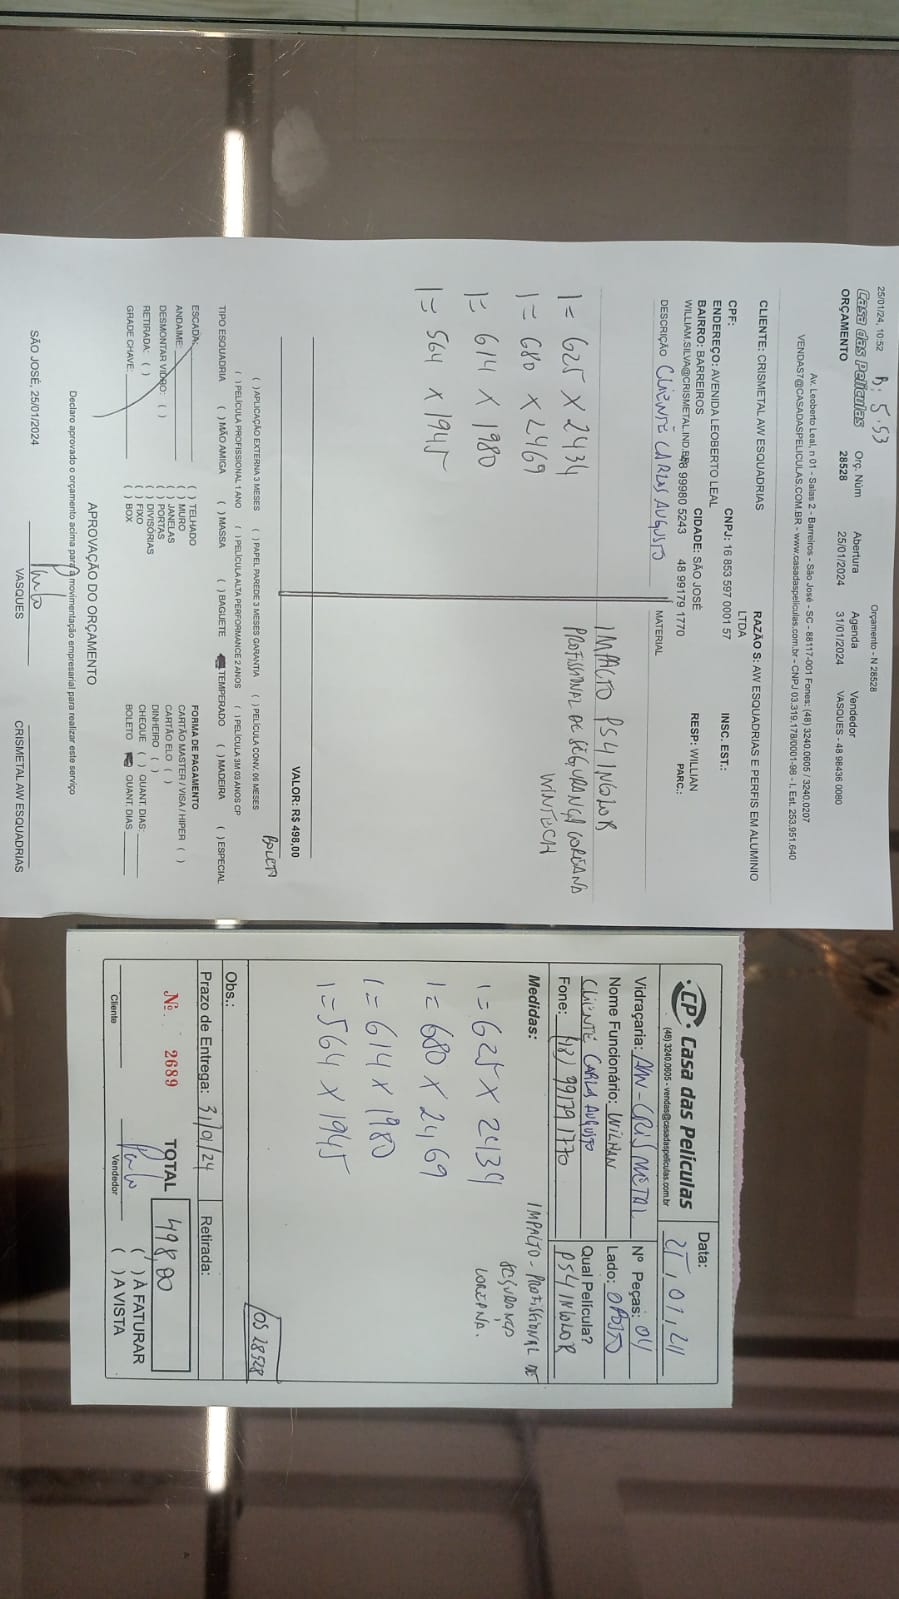 25/01/24, 10:52
B: 5.53
Orçamento - N 28528
Casa das Películas
Orç. Núm
Abertura
Agenda
Vendedor
ORÇAMENTO
28528
25/01/2024
31/01/2024
VASQUES - 48 98436 0080
Av. Leoberto Leal, n 01 - Salas 2 - Barreiros - São José - SC - 88117-001 Fones: (48) 3240.0605 / 3240.0207
VENDAS7@CASADASPELICULAS.COM.BR - www.casadaspeliculas.com.br - CNPJ 03.319.178/0001-98 - I. Est. 253.951.640
CLIENTE: CRISMETAL AW ESQUADRIAS
RAZÃO S: AW ESQUADRIAS E PERFIS EM ALUMINIO LTDA
CPF:
CNPJ: 16 853 597 0001 57
INSC. EST.:
ENDEREÇO: AVENIDA LEOBERTO LEAL
BAIRRO: BARREIROS
CIDADE: SÃO JOSÉ
RESP: WILLIAN
WILLIAM.SILVA@CRISMETAL.IND.BR
48 99980 5243
48 99179 1770
PARC.:
DESCRIÇÃO CLIENTE CARLOS AUGUSTO
MATERIAL
1= 625 x 2434
1= 680 x 2469
1= 614 x 1980
1= 564 x 1945
IMPACTO PS4 INCOLOR
PROFISSIONAL DE SEGURANÇA COREANO
WINTECH
VALOR: R$ 498,00
BOLETO
( ) APLICAÇÃO EXTERNA 3 MESES ( ) PAPEL PAREDE 3 MESES GARANTIA ( ) PELÍCULA CONV. 06 MESES
( ) PELÍCULA PROFISSIONAL 1 ANO ( ) PELÍCULA ALTA PERFORMANCE 2 ANOS ( ) PELÍCULA 3M 03 ANOS CP
TIPO ESQUADRIA ( ) MÃO AMIGA ( ) MASSA ( ) BAGUETE TEMPERADO ( ) MADEIRA ( ) ESPECIAL
ESCADA:
ANDAIME:
DESMONTAR VIDRO: ( )
RETIRADA: ( )
GRADE CHAVE:
( ) TELHADO
( ) MURO
( ) JANELAS
( ) PORTAS
( ) DIVISÓRIAS
( ) FIXO
( ) BOX
FORMA DE PAGAMENTO
CARTÃO MASTER / VISA / HIPER ( )
CARTÃO ELO ( )
DINHEIRO ( )
CHEQUE ( ) QUANT. DIAS:
BOLETO QUANT. DIAS:
APROVAÇÃO DO ORÇAMENTO
Declaro aprovado o orçamento acima para a movimentação empresarial para realizar este serviço
SÃO JOSÉ, 25/01/2024
VASQUES
CRISMETAL AW ESQUADRIAS
CP Casa das Películas
(48) 3240.0605 - vendas@casadaspeliculas.com.br
Data:
25/01/24
Vidraçaria: AW-CRISMETAL
Nº Peças: 04
Nome Funcionário: WILLIAN
Lado: OPOSTO
CLIENTE CARLOS AUGUSTO
Qual Película?
Fone: (48) 99179 1770
PS4 INCOLOR
Medidas:
IMPACTO - PROFISSIONAL DE
SEGURANÇA
COREANA.
1= 625 x 2434
1= 680 x 24,69
1= 614 x 1980
1= 564 x 1945
OS 28528
Obs.:
Prazo de Entrega: 31/01/24
Retirada:
Nº. 2689
TOTAL 498,00
( ) À FATURAR
( ) A VISTA
Cliente
Vendedor